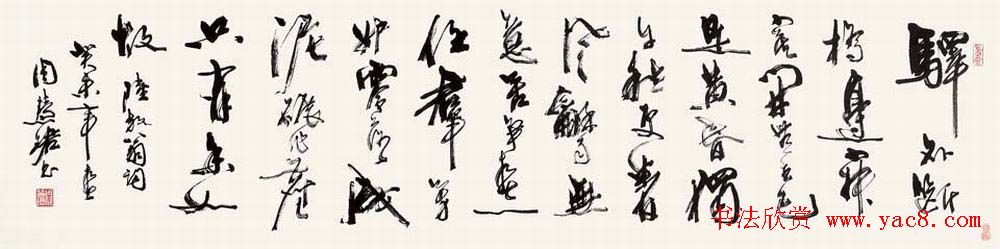 驛外斷
橋邊寂
寞開無主已
是黃昏獨
自愁更著
風和雨無
意苦爭春一
任群芳
妒零落成
泥碾作塵
只有香如
故 陸放翁詞
癸未年
周慧珺書
书法欣赏 www.yac8.com